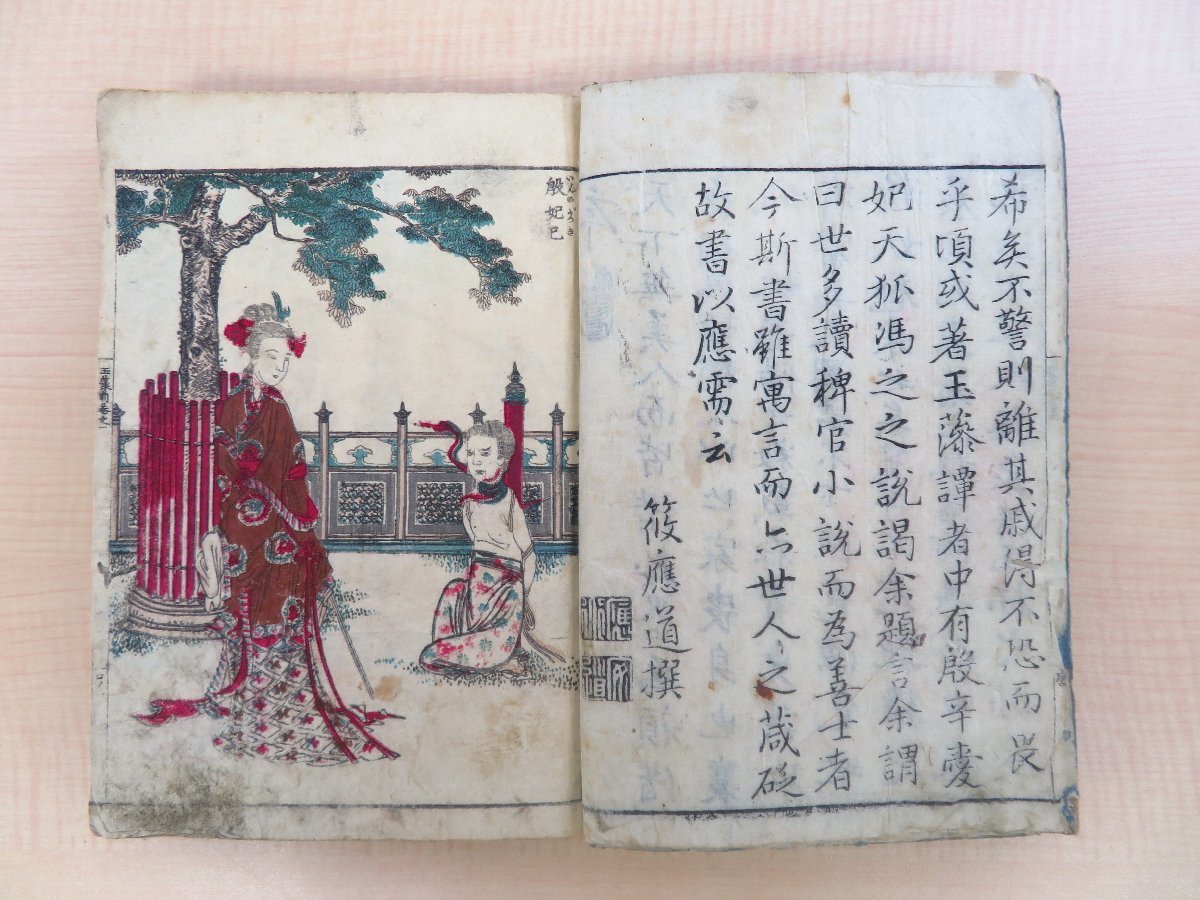 希矣不警則離其戚得不恐而畏
乎頃或著玉藻譚者中有殷辛愛
妃天狐馮之之説謁余題言余謂
曰世多讀稗官小説而為善士者
今斯書雖寓言而亦世人之葴砭
故書以應需云
筱應道撰
殷妲己
いんのだつき